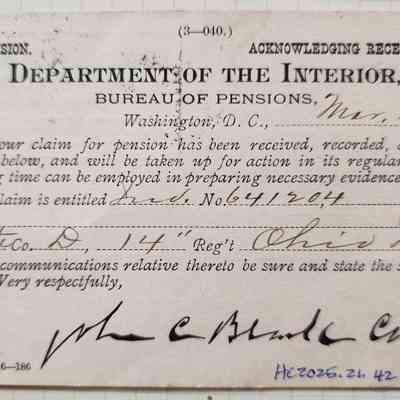 (3—040.)
SION. ACKNOWLEDGING RECE
DEPARTMENT OF THE INTERIOR,
BUREAU OF PENSIONS,
Washington, D. C., Mar.
our claim for pension has been received, recorded, a
below, and will be taken up for action in its regular
g time can be employed in preparing necessary evidence
laim is entitled Ind. No. 641204
Co. D, 14" Reg't Ohio
communications relative thereto be sure and state the
Very respectfully,
John C. Black Co
6—186
HC2025.24 42